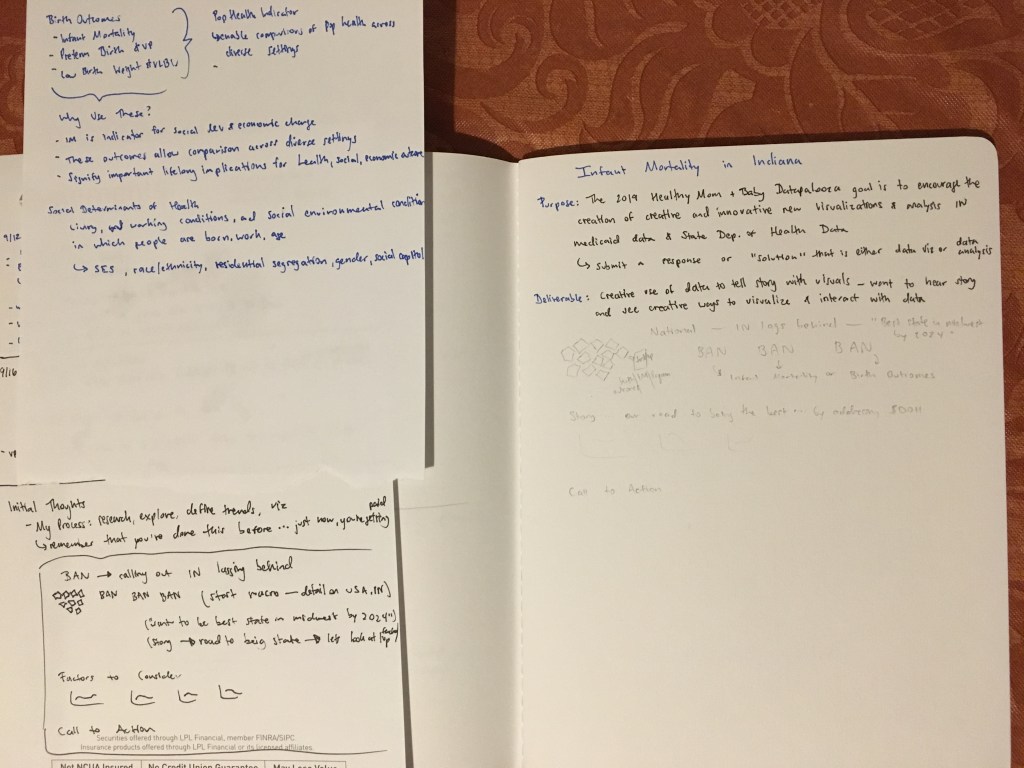 Birth Outcomes
- Infant Mortality
- Preterm Birth & VP
- Low Birth Weight & VLBW
Pop Health Indicator
↳ enable comparisons of Pop health across
diverse settings
-
Why Use These?
- IM is indicator for social dev & economic change
- These outcomes allow comparison across diverse settings
- Signify important lifelong implications for health, social, economic outcome
Social Determinants of Health
living, and working conditions, and social environmental condition
in which people are born, work, age
↳ SES, race/ethnicity, residential segregation, gender, social capital
9/12
9/16
- VP
Initial Thoughts
- My Process: research, explore, define trends, viz
↳ remember that you've done this before ... just now, you're getting
paid
BAN → calling out IN lagging behind
BAN BAN BAN (start macro — detail on USA, IN)
(want to be best state in midwest by 2024")
(story → road to being state → let's look at
Factors to Consider
Call to Action
Securities offered through LPL Financial, member FINRA/SIPC.
Insurance products offered through LPL Financial or its licensed affiliates.
Not NCUA Insured No Credit Union Guarantee May Lose Value
Infant Mortality in Indiana
Purpose: The 2019 Healthy Mom + Baby Datapalooza goal is to encourage the
creation of creative and innovative new visualizations & analysis IN
medicaid data & State Dep. of Health Data
↳ submit a response or "solution" that is either data vis or data
analysis
Deliverable: Creative use of data to tell story with visuals – want to hear story
and see creative ways to visualize & interact with data
National — IN lags behind — "Best state in midwest
by 2024"
BAN BAN BAN
Infant Mortality or Birth Outcomes
Story on road to being the best ... by addressing SDOH
Call to Action